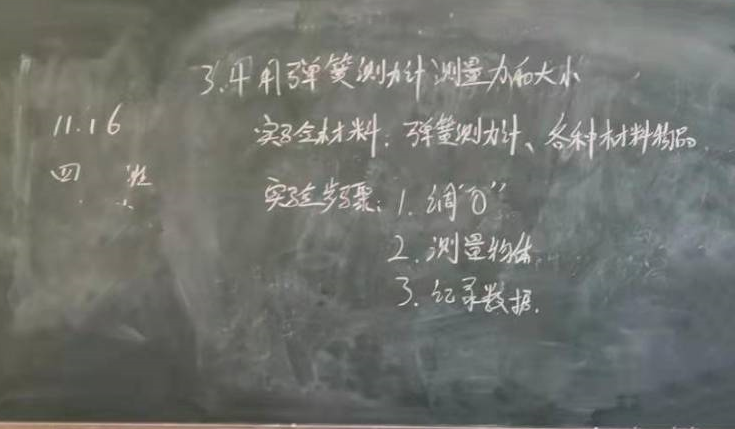 3.4 用弹簧测力计测量力的大小
11.16
实验材料：弹簧测力计、各种材料物品.
四 班
实验步骤：1. 调“0”
2. 测量物体.
3. 记录数据.